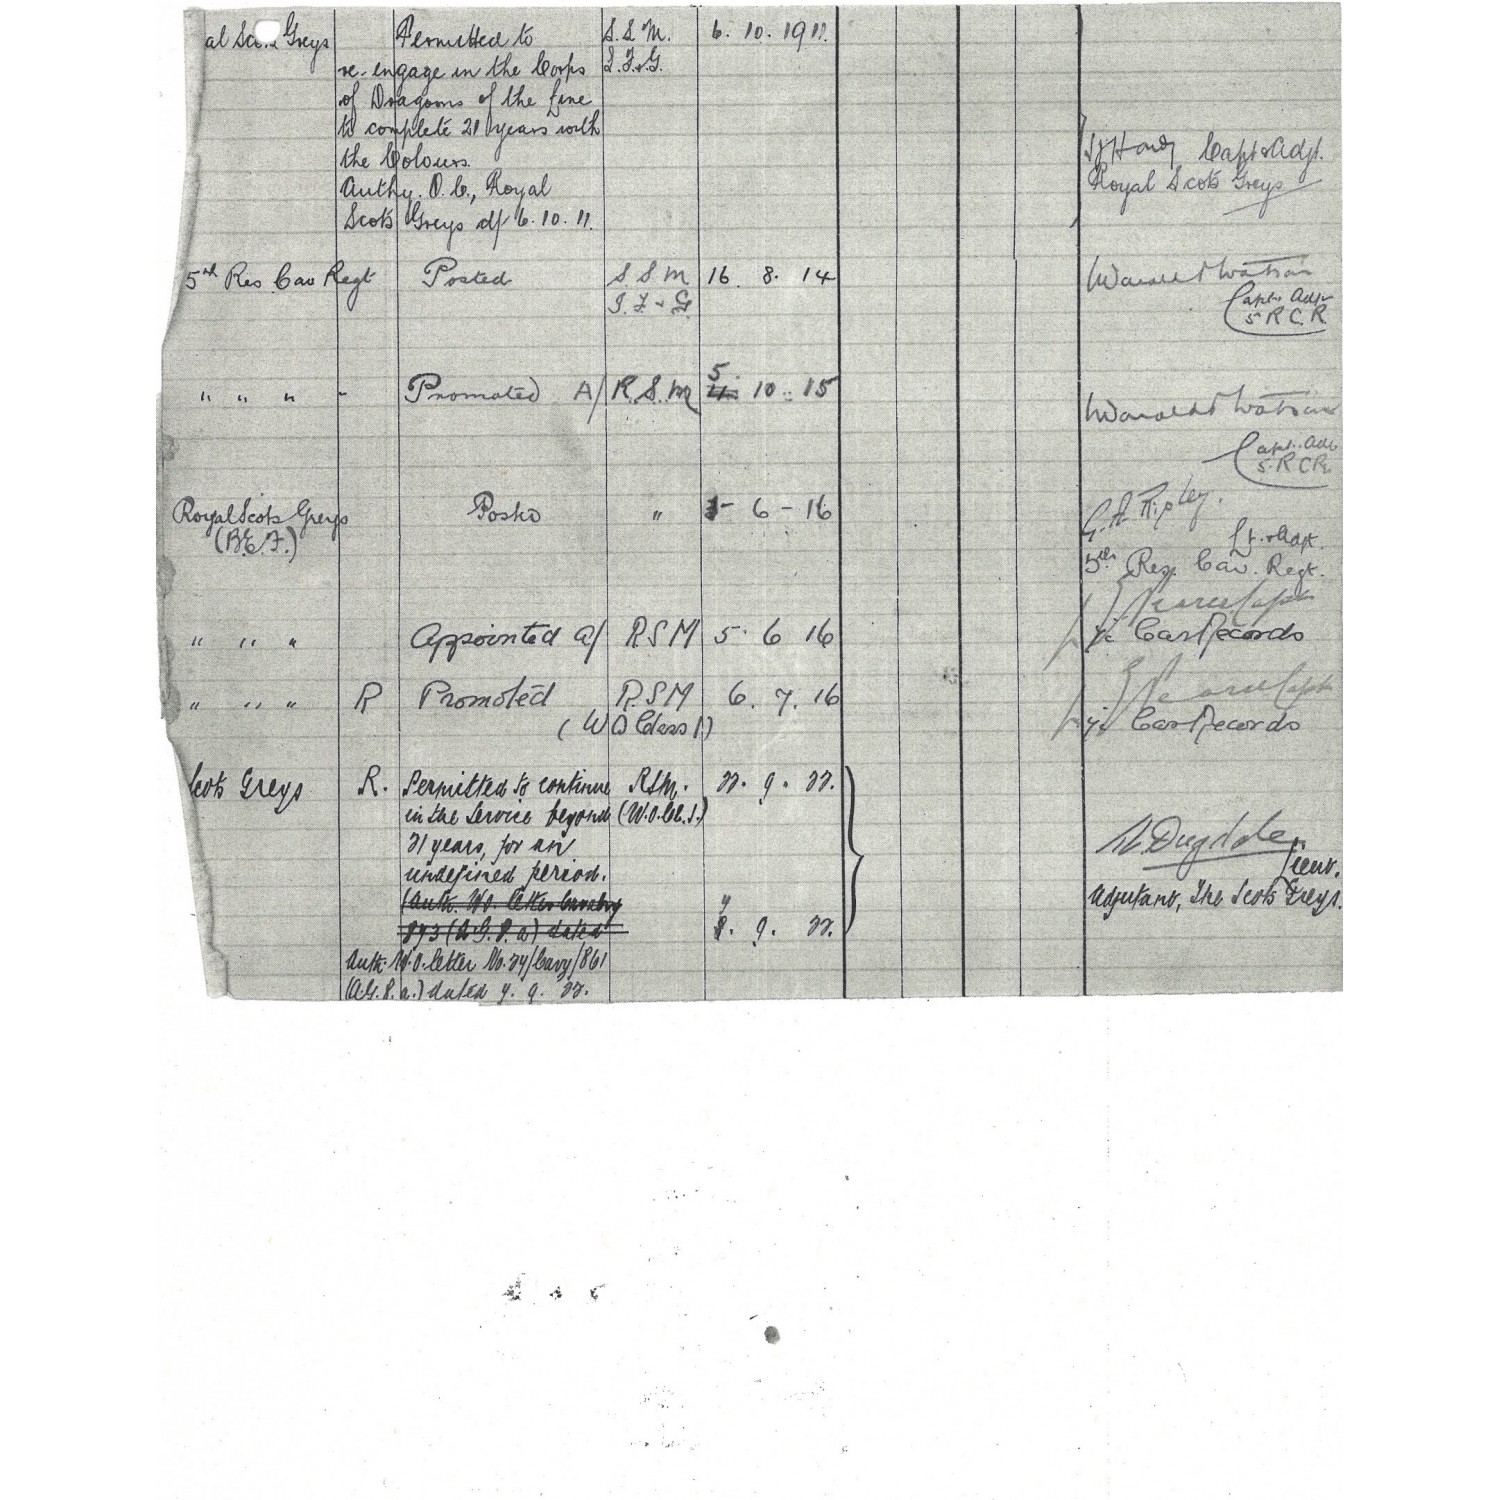 al Scots Greys Permitted to S.S.M. 6. 10. 1911.
re-engage in the Corps I.F.&G.
of Dragoons of the Line
to complete 21 years with
the Colours. Capt & Adjt.
Authy. O.C., Royal Royal Scots Greys
Scots Greys d/ 6.10.11.
5th Res Cav Regt Posted S.S.M 16. 8. 14 Watson
I.F & G. Capt. Adjt
5 R.C.R.
" " " - Promoted A/ R.S.M 5. 4. 10. 15 Watson
Capt. Adjt
5. R.C.R.
Royal Scots Greys Posted " 1 - 6 - 16 G.A. Ripley.
(B.E.F.) Lt. & Adjt.
5th Res. Cav. Regt.
Capt
" " " Appointed a/ RSM 5. 6 16 Cav Records
" " " R Promoted RSM 6. 7. 16 Capt
(WO Class 1) Cav Records
Scots Greys R. Permitted to continue RSM. 22. 9. 22.
in the service beyond (W.O.Cl.1.)
21 years, for an Dugdale
undefined period. Lieut.
(Auth. W.O. letter Cavalry Adjutant, The Scots Greys.
873 (A.G.P.a) dated 9. 22.
Auth. W.O. letter No. 24/Cavy/861
(A.G.P.a.) dated 7. 9. 22.